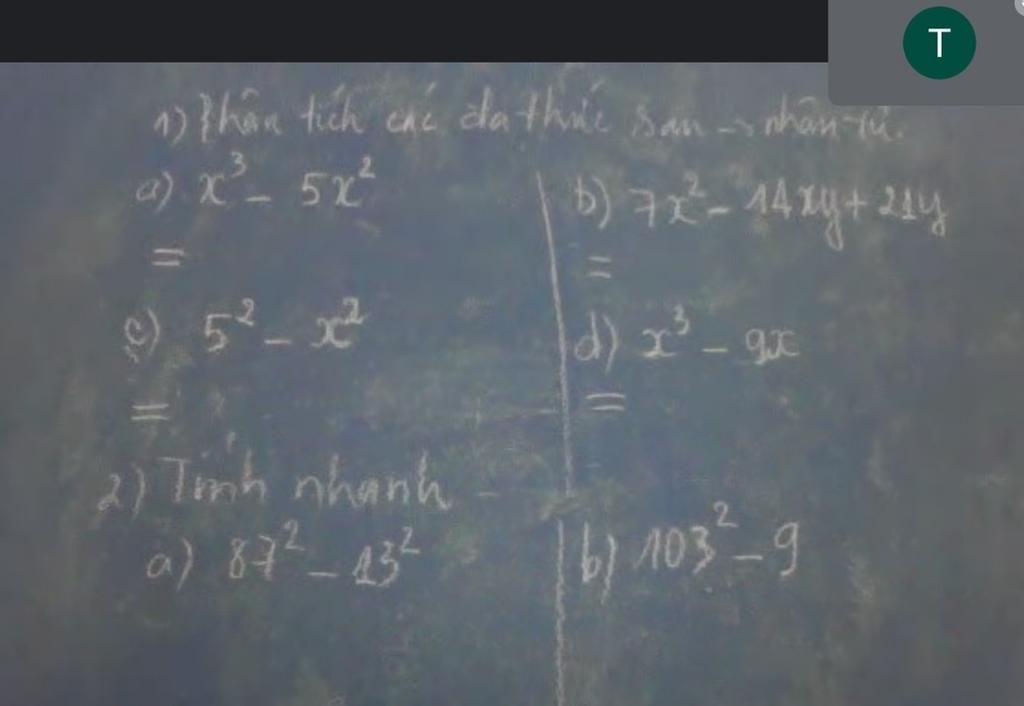 T
1) Phân tích các đa thức sau → nhân tử.
a) x³ - 5x²
b) 7x² - 14xy + 21y
=
=
c) 5² - x²
d) x³ - 9x
=
=
2) Tính nhanh
a) 87² - 13²
b) 103² - 9